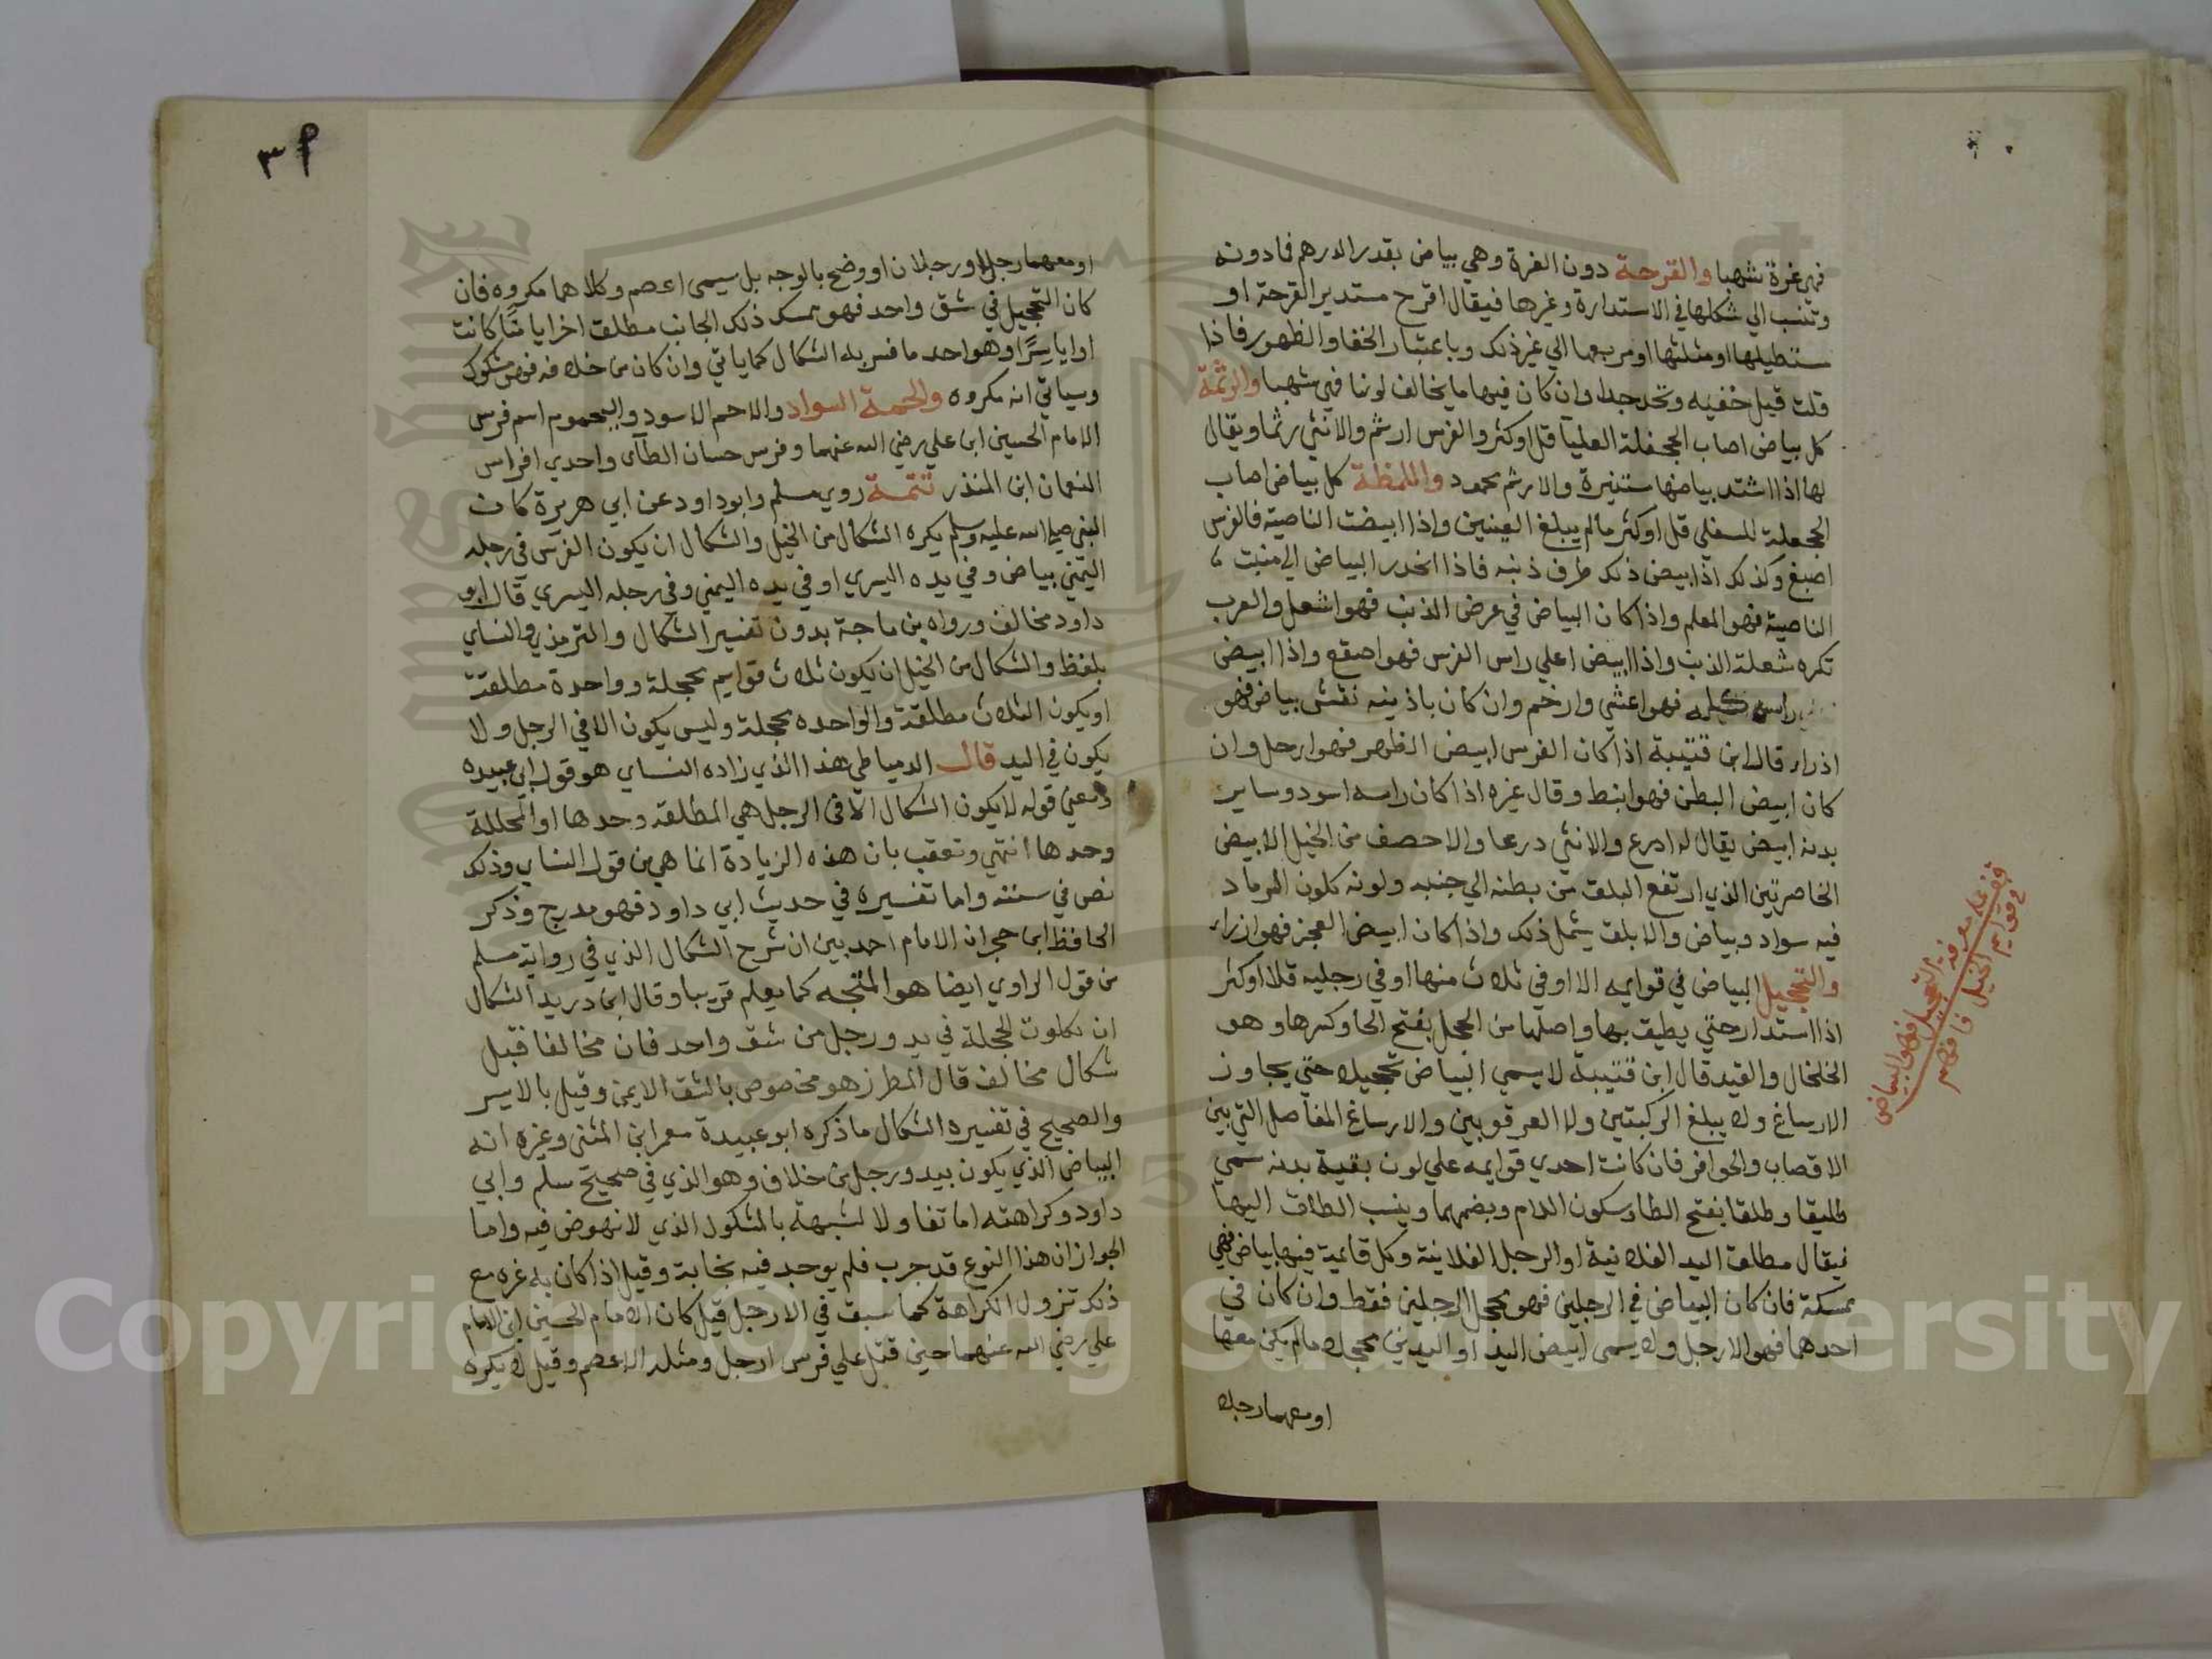 فهي غرة شهبا والقرحة دون الغرة وهي بياض بقدر الدرهم فما دونه
وتنسب الي شكلها في الاستدارة وغيرها فيقال اقرح مستدير القرحة او
مستطيلها او مثلثها او مربعها الي غير ذلك وباعتبار الخفا والظهور فاذا
قلت قيل خفيه وان كان فيها ما يخالف لونها فهي شهبا والرثمة
كل بياض اصاب الجحفلة العليا قل او كثر والفرس ارثم والانثي رثما ويقال
لها اذا اشتد بياضها مستنيرة والارثم محمود واللمظة كل بياض اصاب
الجحفلة السفلي قل او كثر مالم يبلغ العينين واذا ابيضت الناصية فالفرس
اصبغ وكذلك اذا ابيض ذلك طرف ذنبه فاذا انحدر البياض الي منبت
الناصية فهو المعلم واذا كان البياض في عرض الذنب فهو اشعل والعرب
تكره شعلة الذنب واذا ابيض اعلي راس الفرس فهو اصقع واذا ابيض
راسه كله فهو اغشي وارخم وان كان باذنيه نقش بياض فهو
اذراء قال ابن قتيبة اذا كان الفرس ابيض الظهر فهو ارحل وان
كان ابيض البطن فهو انبط وقال غيره اذا كان راسه اسود وساير
بدنه ابيض يقال له ادرع والانثي درعا والاخصف من الخيل الابيض
الخاصرتين الذي ارتفع البلق من بطنه الي جنبه ولونه كلون الرماد
فيه سواد وبياض والابلق يشمل ذلك واذا كان ابيض العجز فهو ازراء
والتحجيل البياض في قوايمه او في ثلاث منها او في رجليه قل او كثر
اذا استدار حتي يطيق بها واصلها من الحجل بفتح الحا وكسرها وهو
الخلخال والقيد قال ابن قتيبة لا يسمي البياض تحجيلا حتي يجاوز
الارساغ ولا يبلغ الركبتين ولا العرقوبين والارساغ المفاصل التي بين
الاقصاب والحوافر فان كانت احدي قوايمه علي لون بقية بدنه سمي
طليقا وطلقا بفتح الطا وسكون اللام وبضمهما وينسب الطلاق اليها
فيقال مطلق اليد الفلانية او الرجل الفلانية وكل قايمة فيها بياض فهي
ممسكة فان كان البياض في الرجلين فهو محجل الرجلين فقط وان كان في
احدهما فهو الارجل ولا يسمى ابيض اليد او اليدين محجلا مالم يكن معها
او معهما رجلا
قف على معرفة التحجيل فهو البياض
في قوايم الخيل فافهم
٣٩
او معهما رجل او رجلان او وضح بالوجه بل يسمى اعصم وكلاهما مكروه فان
كان التحجيل في شق واحد فهو ممسك ذلك الجانب مطلق اخر ايامنا كانت
او اياسرا وهو احد ما فسر به الشكال كما ياتي وان كان من خلافه فهو مشكول
وسياتي انه مكروه والحمة السواد والاحم الاسود واليحموم اسم فرس
الامام الحسين ابن علي رضي الله عنهما وفرس حسان الطآى واحدي افراس
النعمان ابن المنذر تتمة روي مسلم وابو داود عن ابي هريرة كان
النبي صلي الله عليه وسلم يكره الشكال من الخيل والشكال ان يكون الفرس في رجله
اليمني بياض وفي يده اليسري او في يده اليمني وفي رجله اليسري قال ابو
داود مخالف ورواه بن ماجة بدون تفسير الشكال والترمذي والنساي
بلفظ والشكال من الخيل ان يكون ثلاث قوايم محجلة وواحدة مطلقة
او يكون الثلاث مطلقة والواحده محجلة وليس يكون الا في الرجل ولا
يكون في اليد قال الدمياطي هذا الذي زاده النساي هو قول ابي عبيده
ومعني قوله لا يكون الشكال الا في الرجل هي المطلقه وحدها او المحللة
وحدها انتهي وتعقب بان هذه الزيادة انما هي من قول النساي وذلك
نص في سننه واما تفسيره في حديث ابي داود فهو مدرج وذكر
الحافظ ابن حجر ان الامام احمد بين ان شرح الشكال الذي في رواية مسلم
من قول الراوي ايضا هو المتجه كما يعلم قريبا وقال ابن دريد الشكال
ان تكون الحجلة في يد ورجل من شق واحد فان مخالفا فقيل
شكال مخالف قال المطرز هو مخصوص بالشق الايمن وقيل بالايسر
والصحيح في تفسيره الشكال ما ذكره ابو عبيدة معمر ابن المثني وغيره انه
البياض الذي يكون بيد ورجل من خلاف وهو الذي في صحيح مسلم وابي
داود وكراهته اما تفاولا لشبهه بالمشكول الذي لا نهوض فيه واما
لجواز ان هذا النوع قد جرب فلم يوجد فيه نجابة وقيل اذا كان به غره مع
ذلك تزول الكراهة كما سبق في الارجل قيل كان الامام الحسين ابن الامام
علي رضي الله عنهما حين قتل علي فرس ارجل ومثله الاعصم وقيل لا يكره
Copyright © King Saud University